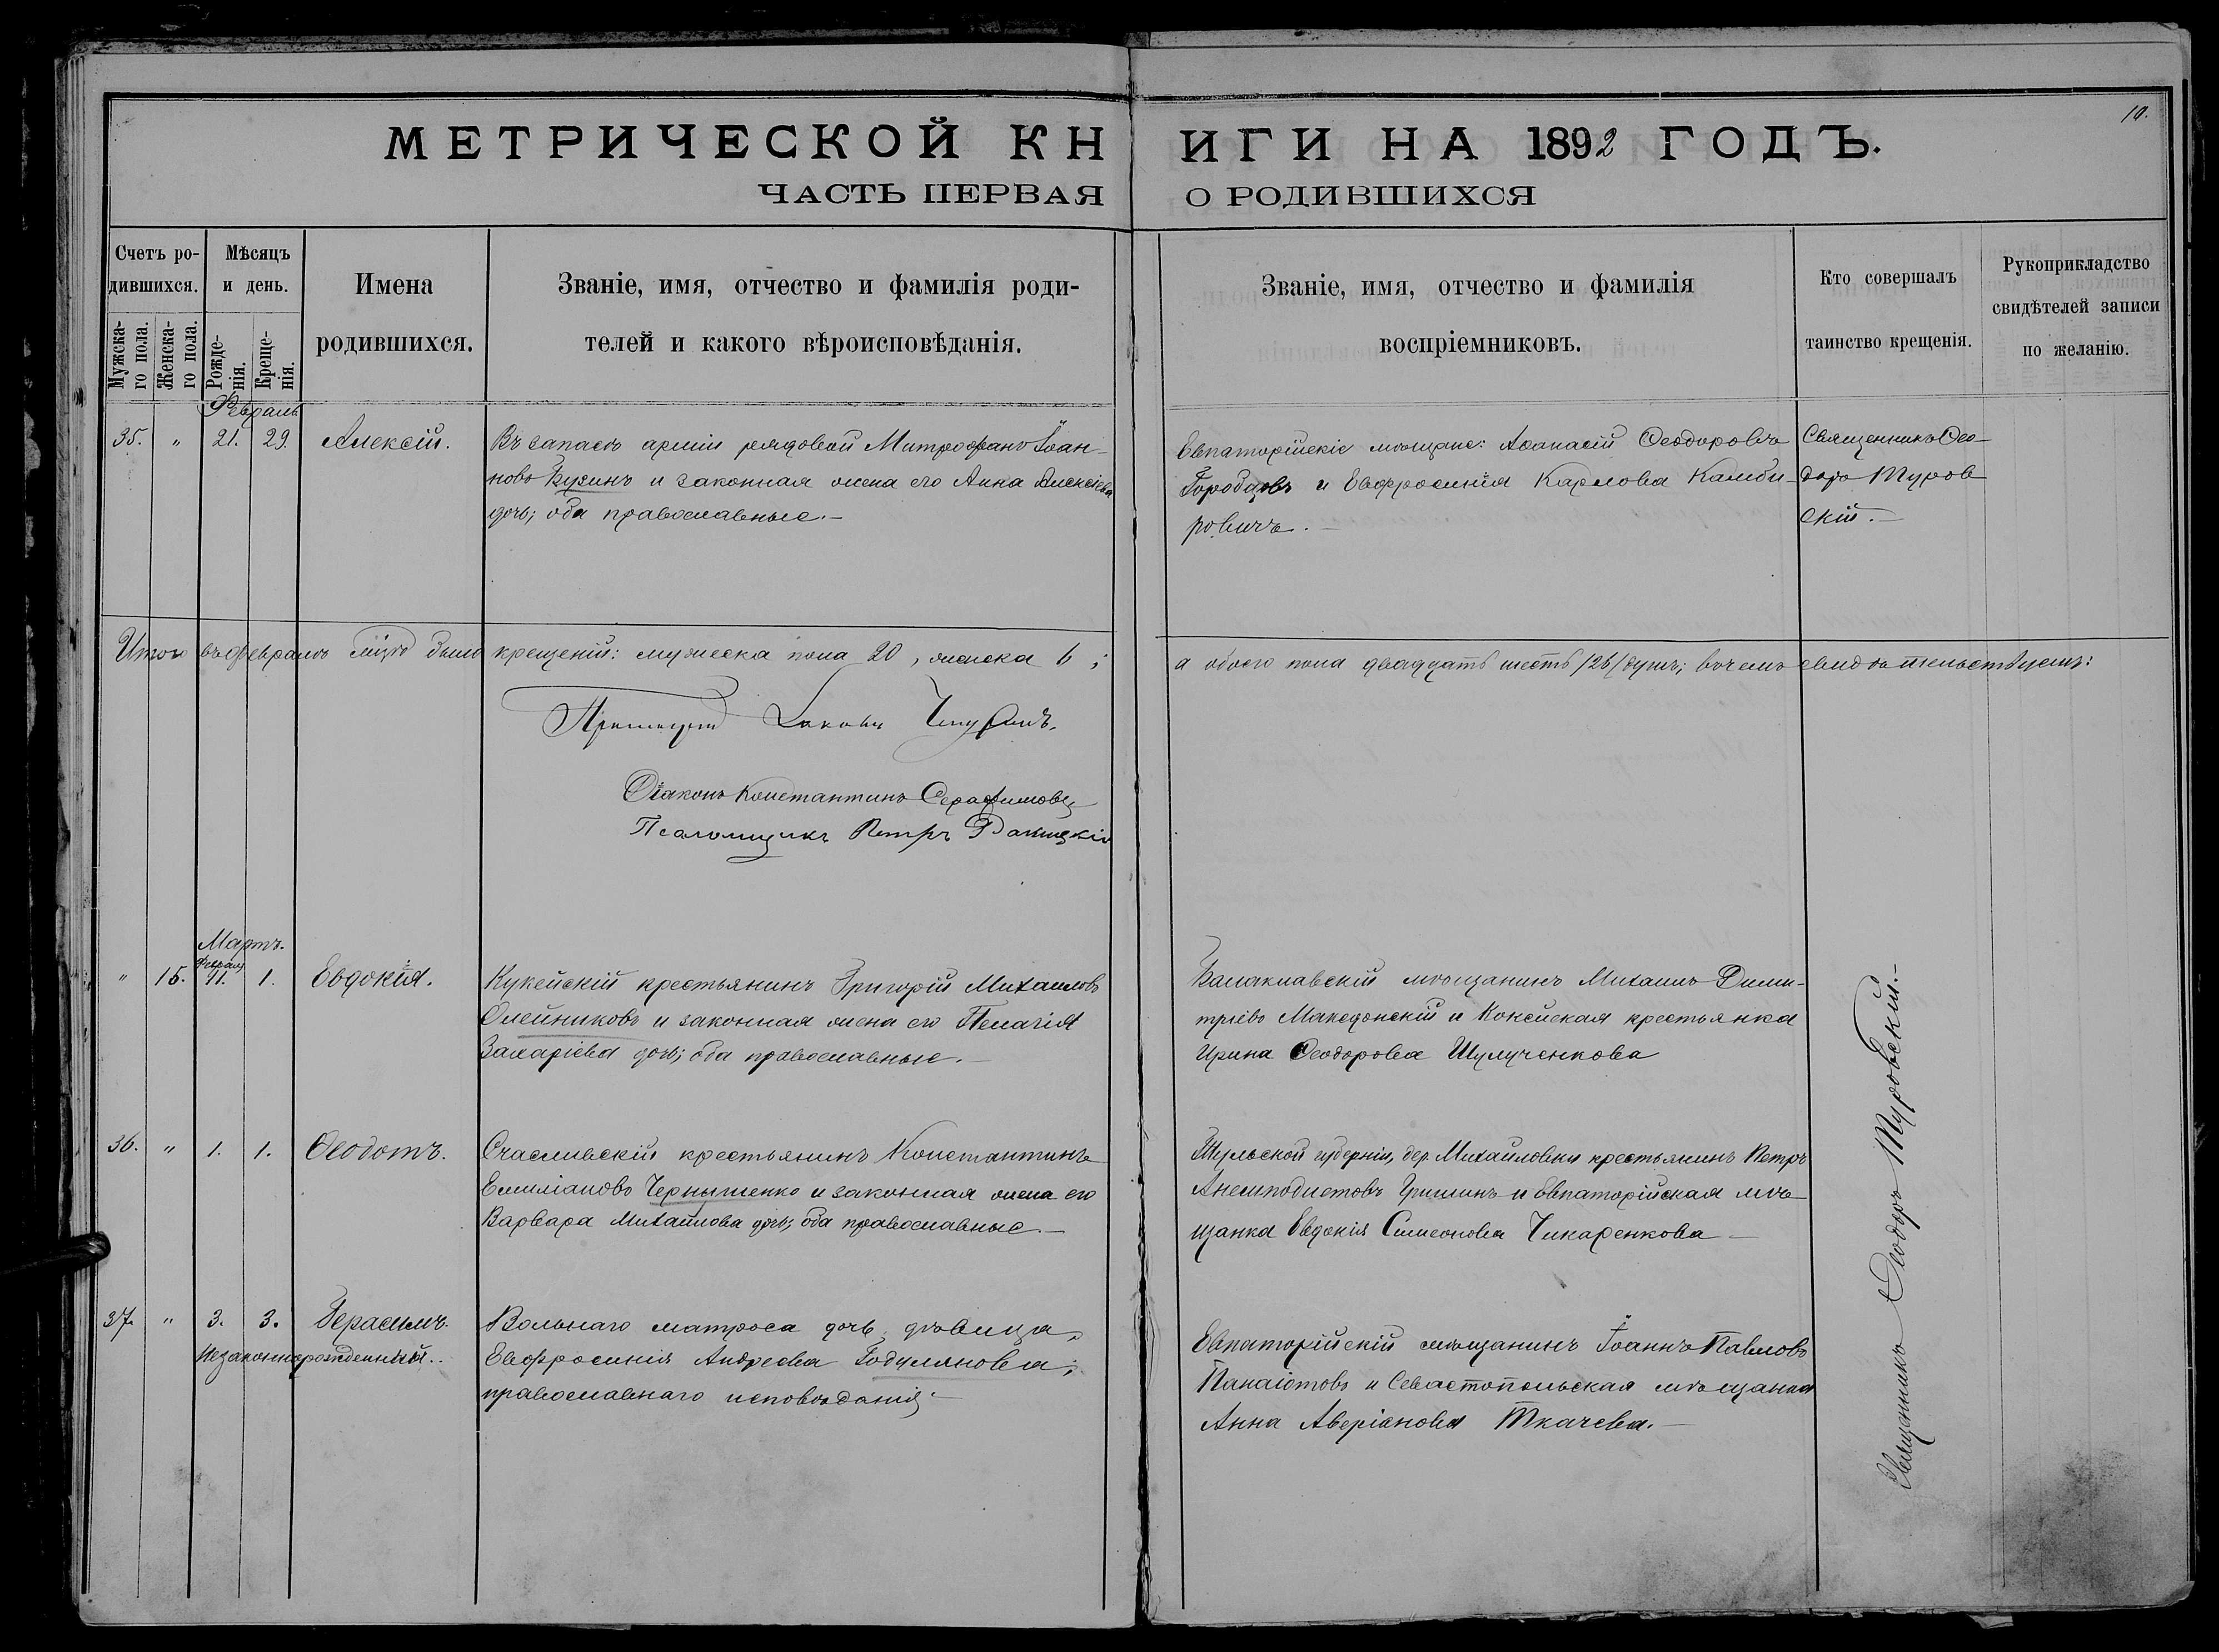 10.
МЕТРИЧЕСКОЙ КНИГИ НА 1892 ГОДЪ.
ЧАСТЬ ПЕРВАЯ О РОДИВШИХСЯ
Счетъ ро-
дившихся.
Мужска-
го пола.
Женска-
го пола.
Мѣсяцъ
и день.
Рожде-
нія.
Креще-
нія.
Имена
родившихся.
Званіе, имя, отчество и фамилія роди-
телей и какого вѣроисповѣданія.
Званіе, имя, отчество и фамилія
воспріемниковъ.
Кто совершалъ
таинство крещенія.
Рукоприкладство
свидѣтелей записи
по желанію.
Февраль
35. " 21. 29. Алексій.
Въ запасѣ арміи рядовой Митрофанъ Іоан-
новъ Бузинъ и законная жена его Анна Алексіева
дочь; оба православные.-
Евпаторійскіе мѣщане: Аѳанасій Ѳеодоровъ
Городцовъ и Евфросинія Карлова Камби-
ровичъ.-
Священникъ Ѳео-
доръ Туров
скій.-
Итого въ февралѣ мцѣ было крещеній: мужеска пола 20, женска 6;
а обоего пола двадцать шесть /26/ душъ; въ чемъ свидѣтельствуемъ:
Протоіерей Іаковъ Чепуринъ.
Діаконъ Константинъ Серафимовъ
Псаломщикъ Петръ Ракицкій
Мартъ.
Февраля
" 15. 11. 1. Евдокія.
Кукейскій крестьянинъ Григорій Михаиловъ
Олейниковъ и законная жена его Пелагія
Захаріева дочь; оба православные.-
Балаклавскій мѣщанинъ Михаилъ Дими-
тріевъ Македонскій и Кокейская крестьянка
Ирина Ѳеодорова Шулученкова
36. " 1. 1. Ѳеодотъ.
Счасливскій крестьянинъ Константинъ
Емиліановъ Чернышенко и законная жена его
Варвара Михаилова дочь; оба православные.-
Тульской губерніи, дер. Михайловки крестьянинъ Петръ
Анемподистовъ Гришинъ и Евпаторійская мѣ-
щанка Евдокія Симеонова Чикаренкова -
37. " 3. 3. Герасимъ.
Незаконнорожденный..
Вольнаго матроса дочь, дѣвица,
Евфросинія Андреева Годулянова;
православнаго исповѣданія.-
Евпаторійскій мѣщанинъ Іоаннъ Павловъ
Панаіотовъ и Севастопольская мѣщанка
Анна Аверіанова Ткачева.-
Священникъ Ѳеодоръ Туровскій.-